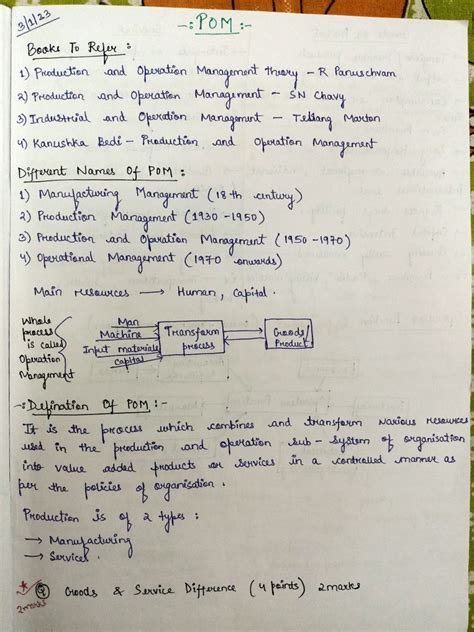 3/1/23
-: POM :-
Books To Refer :
1) Production and Operation Management theory - R Panuschvam
2) Production and Operation Management - SN Chavy
3) Industrial and Operation Management - Telsang Marton
4) Kanushka Bedi - Production and Operation Management
Different Names Of POM :
1) Manufacturing Management (18th century)
2) Production Management (1930 - 1950)
3) Production and Operation Management (1950 - 1970)
4) Operational Management (1970 onwards)
Main resources → Human, Capital.
Whole process is called Operation Management
Man
Machine
Input materials
capital
Transform process
Goods/ Product
-: Defination Of POM :-
It is the process which combines and transform various resources
used in the production and operation sub - system of organisation
into value added products or services in a controlled manner as
per the policies of organisation.
Production is of 2 types :
→ Manufacturing
→ Services.
Q Goods & Service Difference (4 points) 2marks
2marks